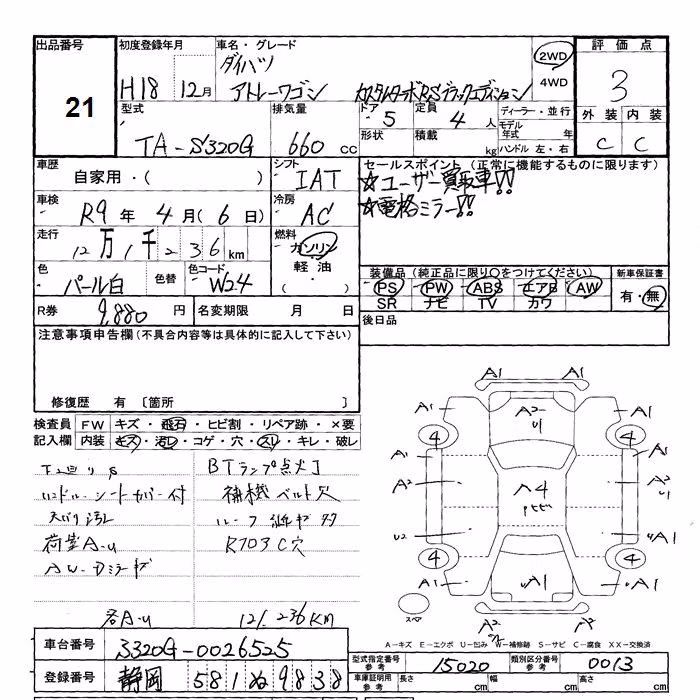 出品番号 初度登録年月 車名・グレード 評価点
21
H18 12月
ダイハツ
アトレーワゴン カスタムターボRSブラックエディション
2WD
4WD
3
外装 内装
C C
型式 排気量 ドア 定員 ディーラー・並行
TA-S320G 660 cc 5 4人
モデル年式 年
形状 積載 kg ハンドル 左・右
車歴 シフト セールスポイント (正常に機能するものに限ります)
自家用・( ) IAT ☆ユーザー買取車!!
車検 冷房 ☆電格ミラー!!
R9年 4月(6日) AC
走行 燃料
12万1千236km ガソリン
軽油
色 色替 色コード
パール白 W24
装備品 (純正品に限り○をつけてください) 新車保証書
PS PW ABS エアB AW 有・無
SR ナビ TV カワ
R券 9,880円 名変期限 月 日 後日品
注意事項申告欄(不具合内容等は具体的に記入して下さい)
修復歴 有 〔箇所 〕
検査員 FW キズ・飛石・ヒビ割・リペア跡・×要
記入欄 内装 キズ・汚レ・コゲ・穴・スレ・キレ・破レ
BTランプ点灯
シートカバー付 補機ベルト欠
天バリ汚レ
荷室A-U
AW-Dミラーキズ
各A-U 121,236KM
A1 A1
A1 A2 U1 A1
4 4
A1 A1
A2 A4 A2 U1
U2 A1
4 4
A1 A1 A1
スペア A2 A2
A-キズ E-エクボ U-凹み W-補修跡 S-サビ C-腐食 XX-交換済
車台番号 S320G-0026525
登録番号 静岡 581 ぬ 9838
型式指定番号 参考 15020 類別区分番号 参考 0013
車庫証明用 参考 長さ cm 幅 cm 高さ cm